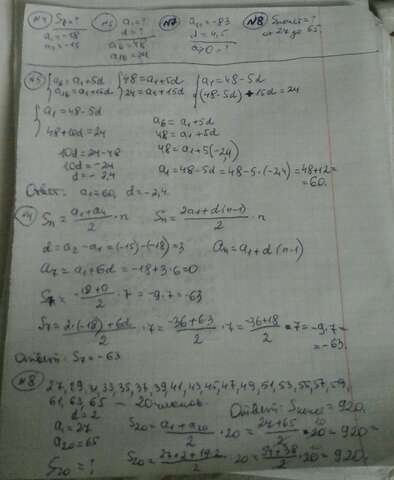 №4 S₇=?
a₁=-18
a₂=-15
№5 a₁=?
d=?
a₆=48
a₁₆=24
№7 a₁=-83
d=4,5
a>0-?
№8 Sнечет=?
от 27 до 65.
№5 { a₆=a₁+5d { 48=a₁+5d { a₁=48-5d
a₁₆=a₁+15d 24=a₁+15d (48-5d)+15d=24
{ a₁=48-5d
48+10d=24
10d=24-48
10d=-24
d=-2,4
a₆=a₁+5d
48=a₁+5d
48=a₁+5(-24)
a₁=48-5d=48-5·(-2,4)=48+12=
=60.
Ответ: a₁=60, d=-2,4.
№4 Sn=(a₁+an)/2·n Sn=(2a₁+d(n-1))/2·n
d=a₂-a₁=(-15)-(-18)=3 an=a₁+d(n-1)
a₇=a₁+6d=-18+3·6=0
S₇=(-18+0)/2·7=-9·7=-63
S₇=(2·(-18)+6d)/2·7=(-36+6·3)/2·7=(-36+18)/2·7=-9·7=
=-63.
Ответ: S₇=-63
№8 27,29,31,33,35,37,39,41,43,45,47,49,51,53,55,57,59,
61,63,65 — 20 членов.
d=2
a₁=27
a₂₀=65
S₂₀=?
Ответ: Sнечет=920.
S₂₀=(a₁+a₂₀)/2·20=(27+65)/2·20=920=
S₂₀=(27·2+19·2)/2·20=(54+38)/2·20=920.